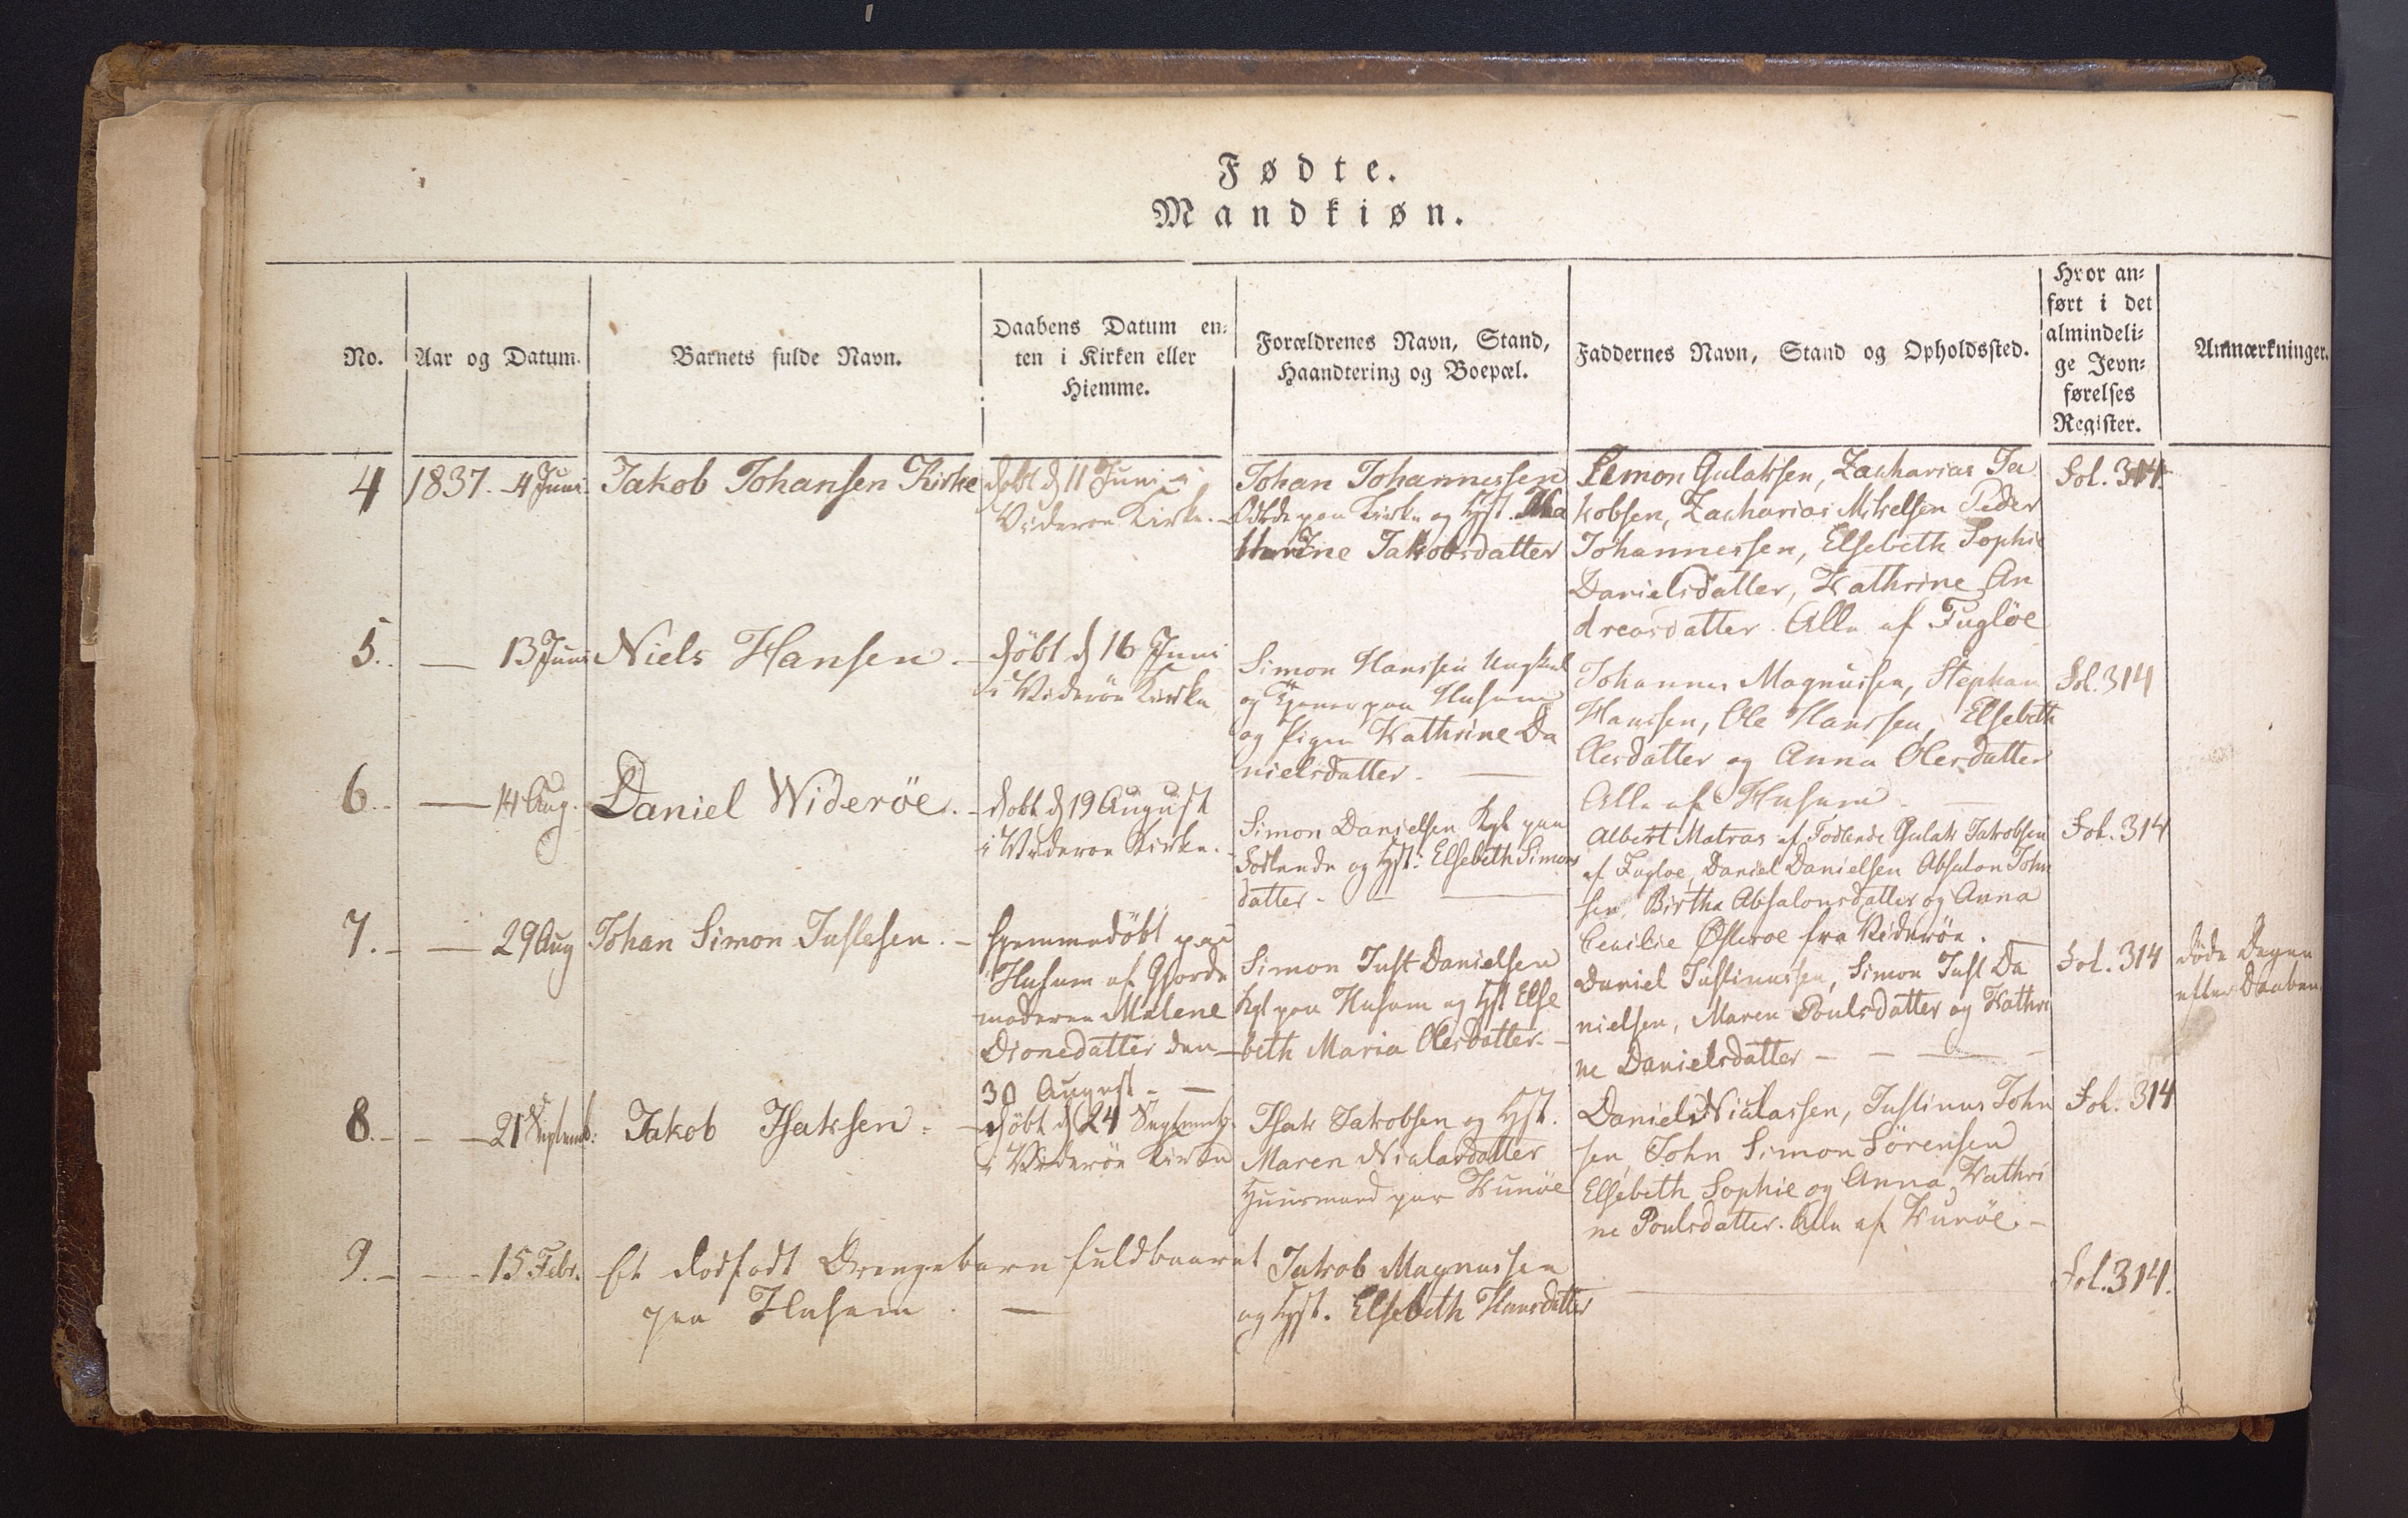 Fødte.
Mandkiøn.
No.
Aar og Datum.
Barnets fulde Navn.
Daabens Datum en-
ten i Kirken eller
Hiemme.
Forældrenes Navn, Stand,
Haandtering og Boepæl.
Faddernes Navn, Stand og Opholdssted.
Hvor an-
ført i det
almindeli-
ge Jevn-
førelses
Register.
Anmærkninger.
4
1837. 4 Juni.
Jakob Johansen Kirke
døbt d 11 Juni i
Videröe Kirke.
Johan Johannessen
paa Kirke og Hst.
Jakobsdatter
Simon Gulaksen, Zacharias Ja
kobsen, Zacharias Mikelsen Peder
Johannessen, Elsebeth Sophie
Danielsdatter, Kathrine An
dreasdatter. Alle af Fuglöe
Fol. 314.
5.
— 13 Juni
Niels Hansen. —
døbt d 16 Juni
i Videröe Kirke
Simon Hanssen Ungkarl
og Tjener paa Husum
og Pigen Kathrine Da
nielsdatter. —
Johannes Magnussen, Stephan
Hanssen, Ole Hanssen, Elsebeth
Olesdatter og Anna Olesdatter
Alle af Husum. —
Fol. 314
6.
— 14 Aug.
Daniel Wideröe. —
døbt d 19 August
i Videröe Kirke.
Simon Danielsen Kgb paa
Fodlende og Hst: Elsebeth Simons
datter. —
Albert Matras af Fodlende Gulak Jakobsen
af Fugloe, Daniel Danielsen Absalon John
sen, Birtha Absalonsdatter og Anna
Cecilie Østeroe fra Viderøe.
Fol. 314
7.
— 29 Aug
Johan Simon Justesen. —
hjemmedöbt paa
Husum af Gjorde
moderen Malene
Dionedatter den —
30 August. —
Simon Just Danielsen
Kgb paa Husum og Hst Else
beth Maria Olesdatter. —
Daniel Justinussen, Simon Just Da
nielsen, Maren Poulsdatter og Kathri
ne Danielsdatter —
Fol. 314
döde Dagen
efter Daaben.
8.
— 21 Septemb:
Jakob Isaksen. —
döbt d 24 Septemb.
i Videröe Kirke
Isak Jakobsen og Hst.
Maren Nialasdatter
Huusmand paa Kunöe
Daniel Nialassen, Justinus John
sen, John Simon Sörensen
Elsebeth Sophie og Anna Kathri
ne Poulsdatter. Alle af Kunöe. —
Fol. 314
9.
— 15 Febr.
Et dødfødt Drengebarn fuldbaaret
paa Husum. —
Jakob Magnussen
og Hst. Elsebeth Hansdatter
Fol. 314.